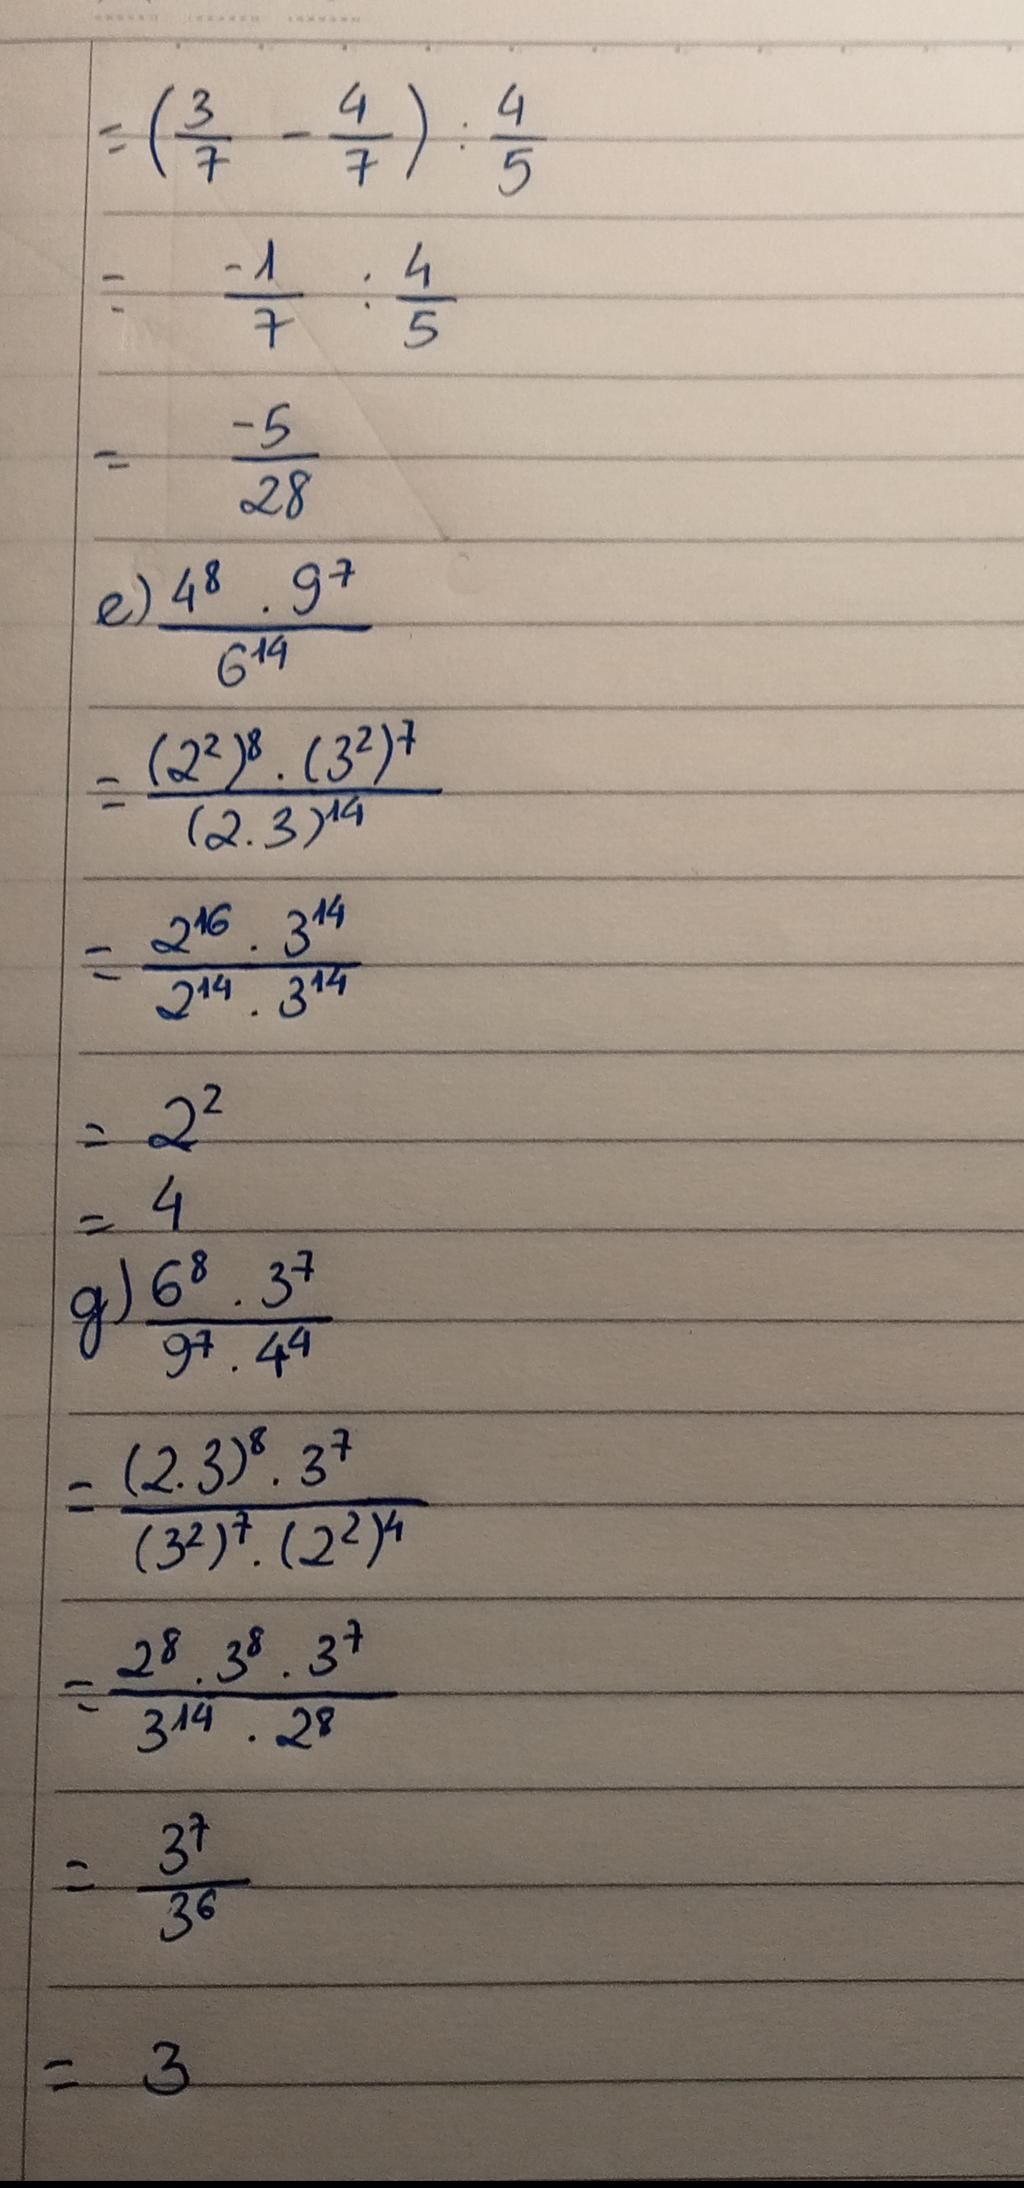 = (3/7 - 4/7) : 4/5
= -1/7 : 4/5
= -5/28
e) 4⁸ . 9⁷ / 6¹⁴
= (2²)⁸ . (3²)⁷ / (2.3)¹⁴
= 2¹⁶ . 3¹⁴ / 2¹⁴ . 3¹⁴
= 2²
= 4
g) 6⁸ . 3⁷ / 9⁷ . 4⁴
= (2.3)⁸ . 3⁷ / (3²)⁷ . (2²)⁴
= 2⁸ . 3⁸ . 3⁷ / 3¹⁴ . 2⁸
= 3⁷ / 3⁶
= 3